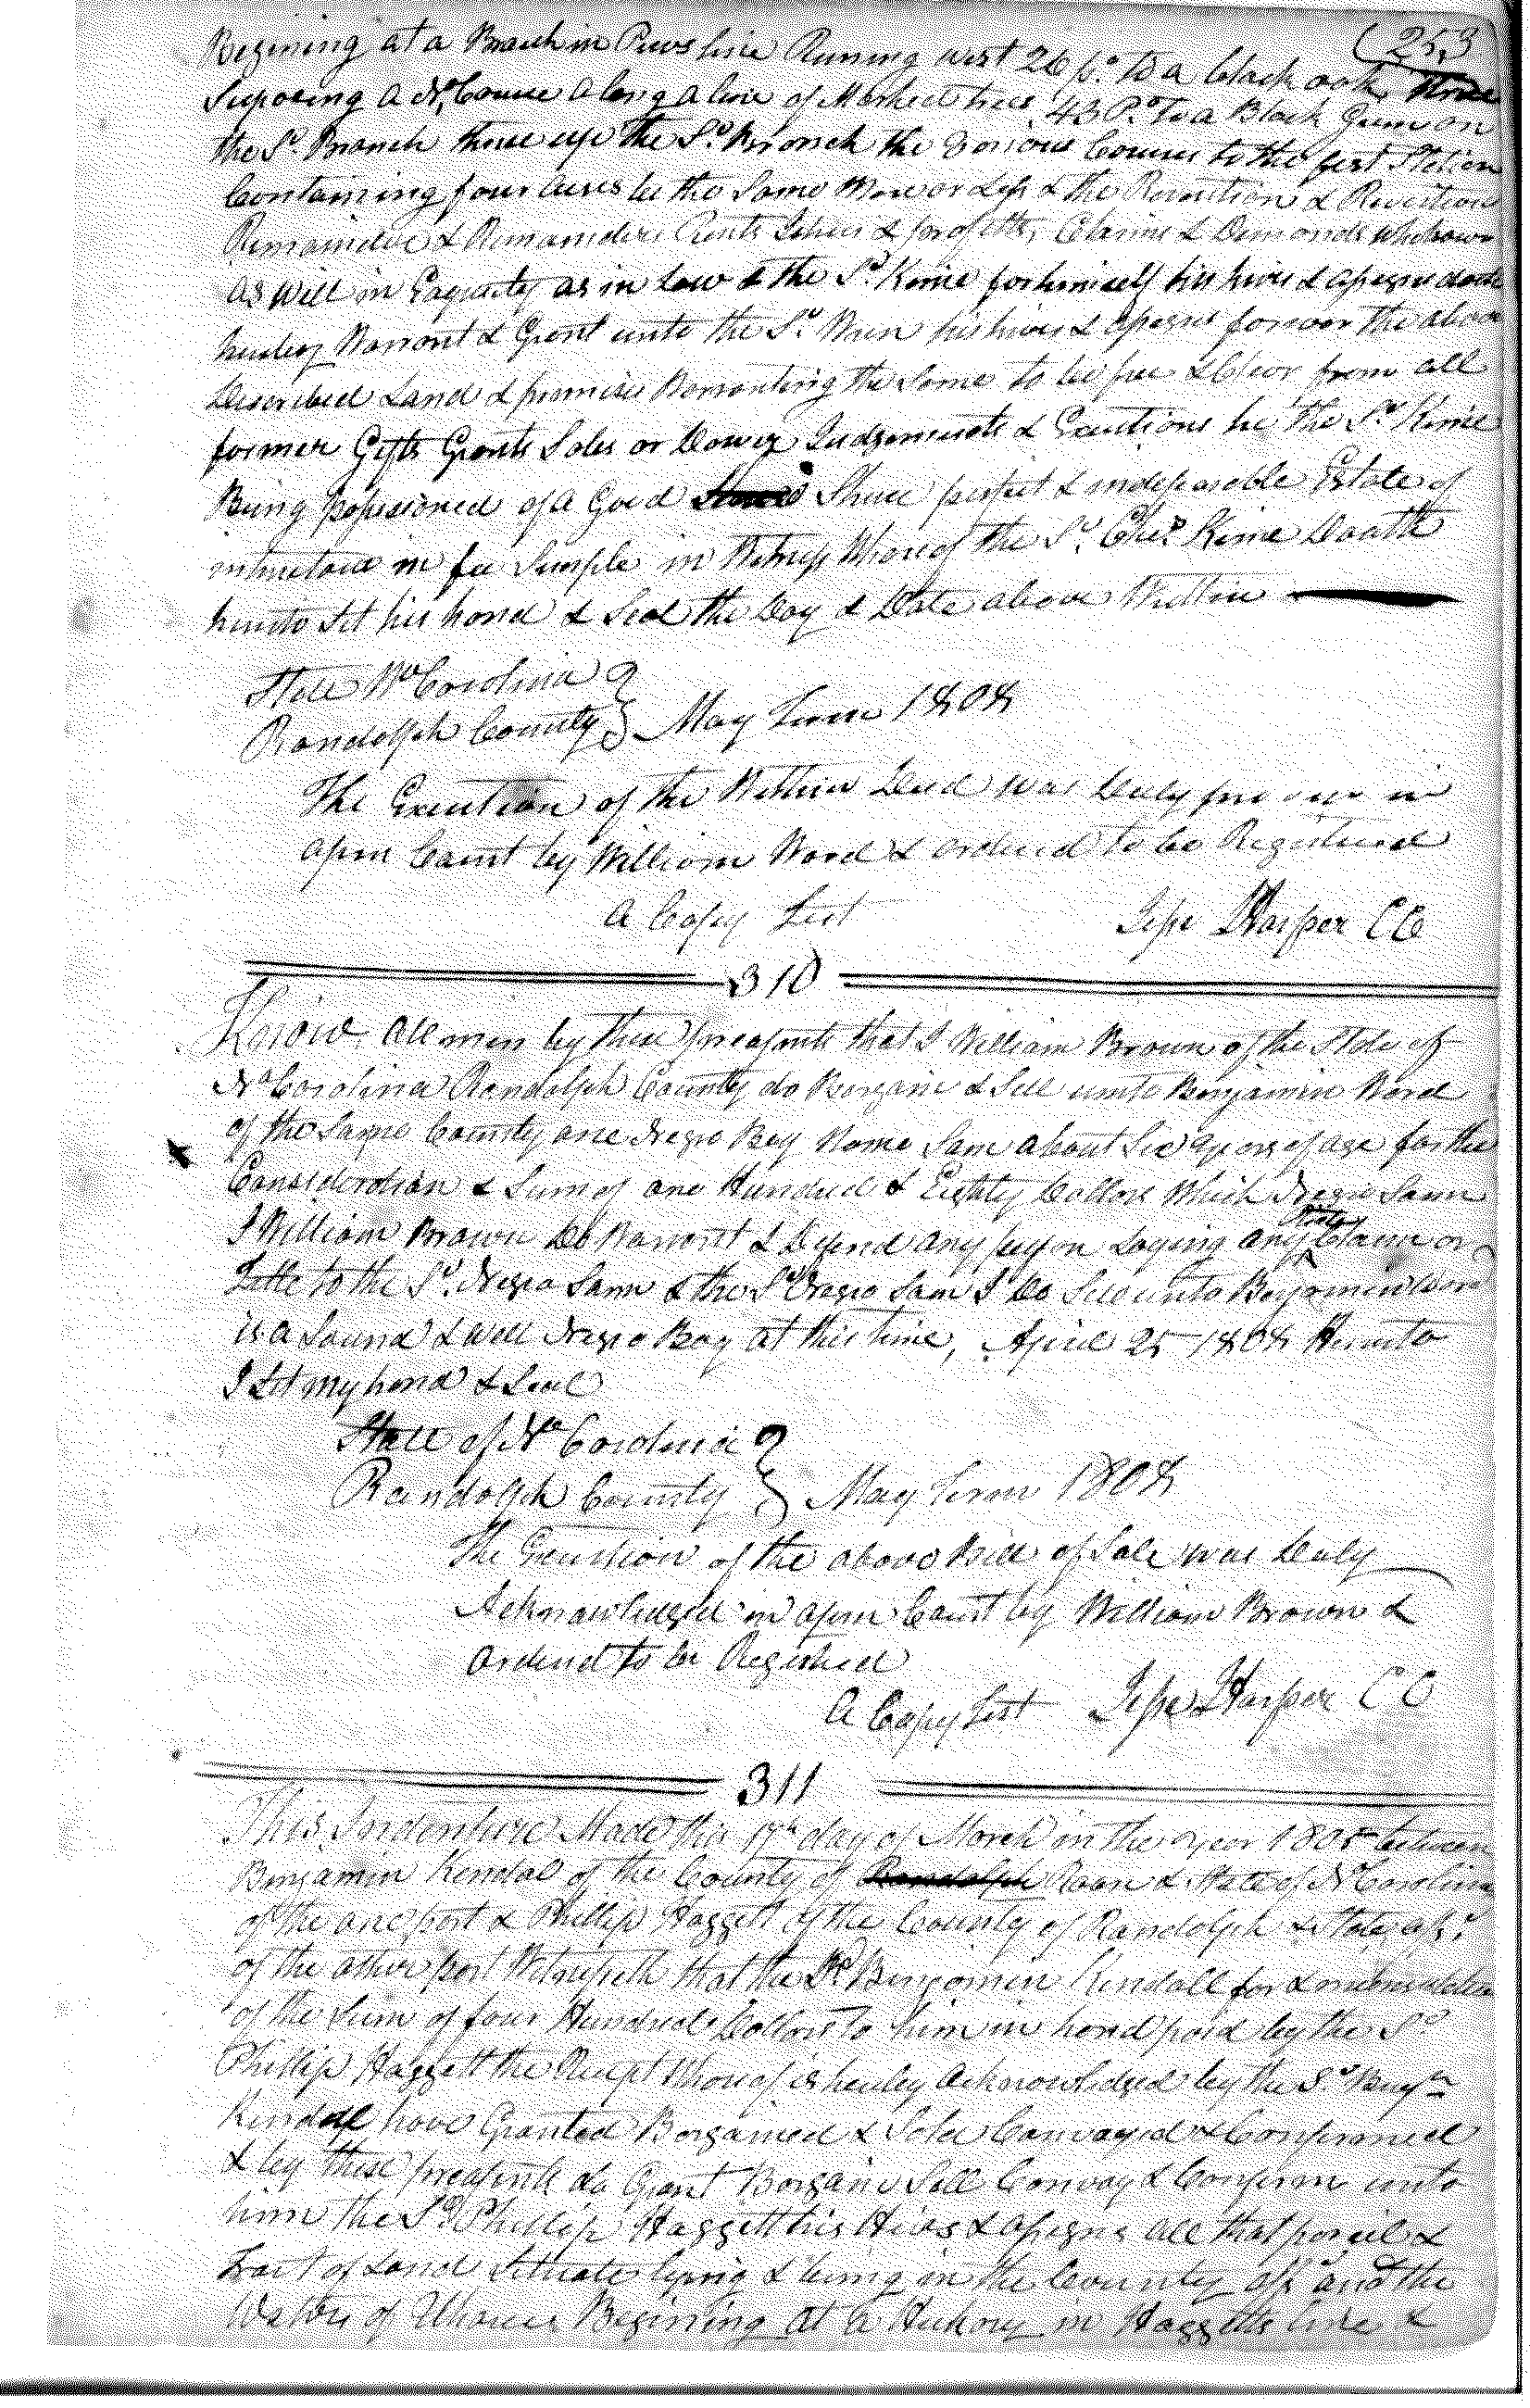 (253)
Begining at a Branch in Pews line Runing west 26 po. to a black oak thence
Suposing a No. Course along a line of Marked trees 43 Po. to a Black Gum on
the Sd. Branch thence up the Sd. Branch the Various Courses to the first Station
Containing four Acres be the Same More or Less & the Revertion & Revertions
Remainder & Remainders Rents Ishues & profitts, Claims & Demands whatsover
as Well in Equity as in Law & the Sd. Kime for himself his heirs & assigns doath
hereby Warrant & Grant unto the Sd. his heirs & assigns forever the above
Described Land & premises Warranting the Same to be free & Clear from all
former Gifts Grants Sales or Dower Judgements & Exeutions he the Sd. Kime
Being possessioned of a Good Shure perfect & indefeasible Estate of
inheritance in fee Simple in Witness Whereof the Sd. Kime Doath
hereto Set his hand & Seal the Day & Date above Written
State No Carolina
Randolph County } May Term 1808
The Exeution of the Within Deed was Duly in
apen Court by William Word & ordered to be Registered
A Copy Test Jesse Harper CC
310
Know all men by these preasents that I William Brown of the State of
No Carolina Randolph County do Bargain & Sell unto Benjamin Word
of the Same County one Negro Boy Name Sam about Six years of age for the
Consideration & Sum of one Hundred & Eighty Dollars Which Negro Sam
I William Brown Do Warrant & Defend any person Laying any Claim or
Title to the Sd. Negro Sam & the Sd Negro Sam I Do Sell unto Benjamin Word
is a Sound & well Negro Boy at this time, April 25 1808 Hereunto
I Set my hand & Seal
State of No Carolina
Randolph County } May Term 1808
The Exeution of the above Bill of Sale was Duly
Acknowledged in apen Court by William Brown &
ordered to be Registred
A Copy Test Jesse Harper CC
311
This Indenture Made this 17th day of March in the year 1805 between
Benjamin Kendal of the County of Randolph Roan & State of No Carolina
of the one part & Phillip Hoggett of the County of Randolph & State afsd.
of the other part Witnesseth that the Sd Benjamin Kendall for & in
of the Sum of four Hundred Dollars to him in hand paid by the Sd
Phillip Hoggett the Receipt Whereof is hereby Acknowledged by the Sd Benjn
Kendall have Granted Bargained & Sold Convayed & Confirmed
& by these preasents do Grant Bargain Sell Convay & Confirm unto
him the Sd Phillip Hoggett his Heirs & assigns all that parcel &
Tract of Land Situate lying & being in the County afsd and the
Waters of Uharee Begining at a Hickory in Hoggetts line &